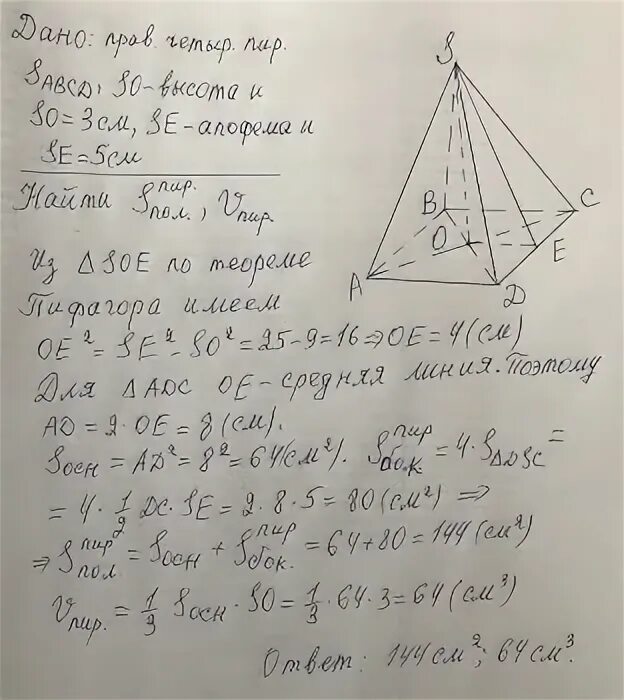 Дано: прав. четыр. пир.
SABCD, SO-высота и
SO=3см, SE-апофема и
SE=5см
Найти Sпол.пир., Vпир.
Из △SOE по теореме
Пифагора имеем
OE²=SE²-SO²=25-9=16⇒OE=4(см)
Для △ADC OE-средняя линия. Поэтому
AD=2·OE=8(см).
Sосн=AD²=8²=64(см²). Sбок.пир=4·S△DSC=
=4·1/2 DC·SE=2·8·5=80(см²)⇒
⇒Sполпир=Sосн+Sбок.пир=64+80=144(см²)
Vпир.=1/3 Sосн·SO=1/3·64·3=64(см³)
Ответ: 144см²; 64см³.
S
B
C
O
E
A
D